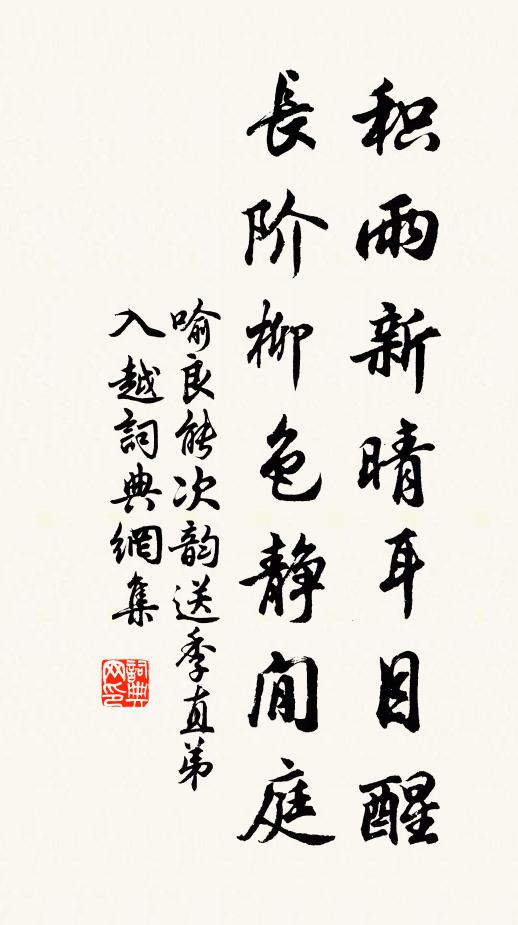 积雨新晴耳目醒
長阶柳色静间庭
喻良能次韵送季直弟
入越詞典網集
詞典网印